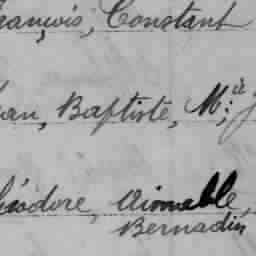 rançois, Constant
ean, Baptiste, M.ie J
héodore, Aimable,
Bernadin